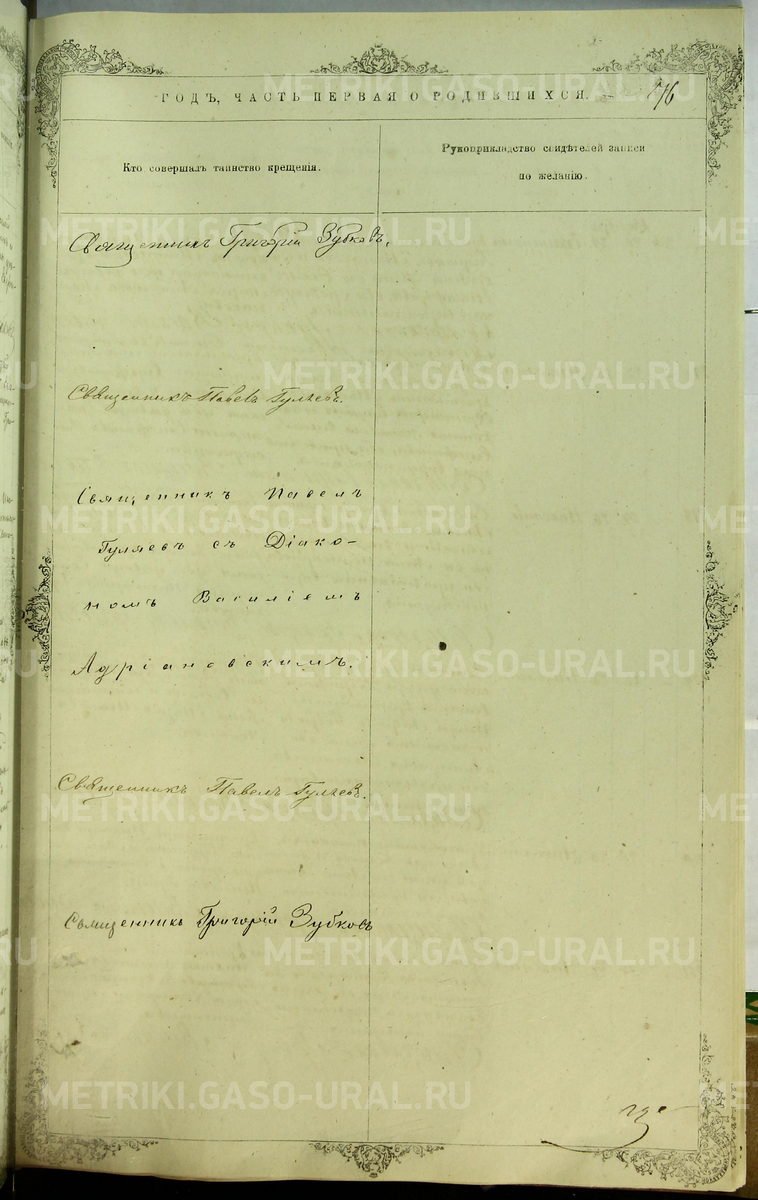 ГОДЪ, ЧАСТЬ ПЕРВАЯ О РОДИВШИХСЯ.
Кто совершалъ таинство крещенія.
Рукоприкладство свидѣтелей записи
по желанію.
Священникъ Григорій Зубковъ.
Священникъ Павелъ Гуляевъ.
Священникъ Павелъ
Гуляевъ съ Діако-
номъ Василіемъ
Адріановскимъ.
Священникъ Павелъ Гуляевъ.
Священникъ Григорій Зубковъ
METRIKI.GASO-URAL.RU